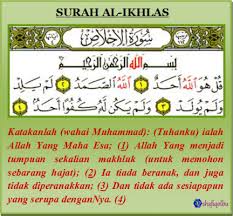 SURAH AL-IKHLAS
سُورَةُ الإِخْلَاصِ
بِسْمِ اللَّهِ الرَّحْمَٰنِ الرَّحِيمِ
قُلْ هُوَ اللَّهُ أَحَدٌ ١ اللَّهُ الصَّمَدُ ٢ لَمْ يَلِدْ
وَلَمْ يُولَدْ ٣ وَلَمْ يَكُن لَّهُ كُفُوًا أَحَدٌ ٤
Katakanlah (wahai Muhammad): (Tuhanku) ialah
Allah Yang Maha Esa; (1) Allah Yang menjadi
tumpuan sekalian makhluk (untuk memohon
sebarang hajat); (2) Ia tiada beranak, dan juga
tidak diperanakkan; (3) Dan tidak ada sesiapapun
yang serupa denganNya. (4)